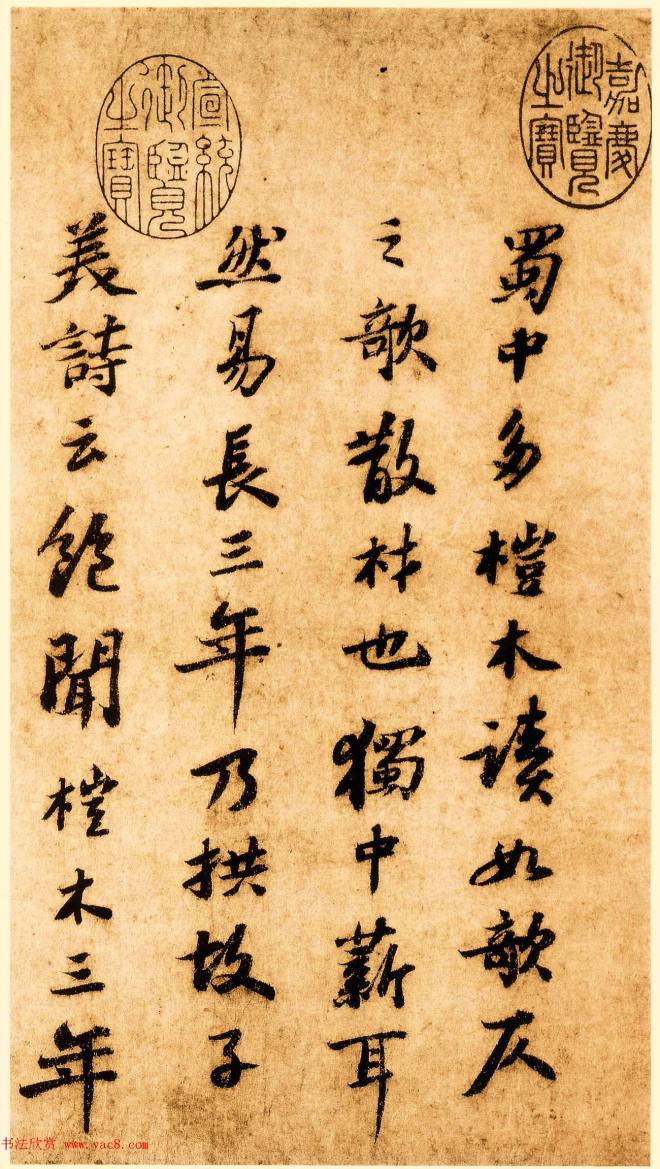 嘉慶御覽之寶
蜀中多榿木讀如欹仄
之欹散材也獨中薪耳
然易長三年乃拱故子
宣統御覽之寶
美詩云飽聞榿木三年
书法欣赏 www.yac8.com